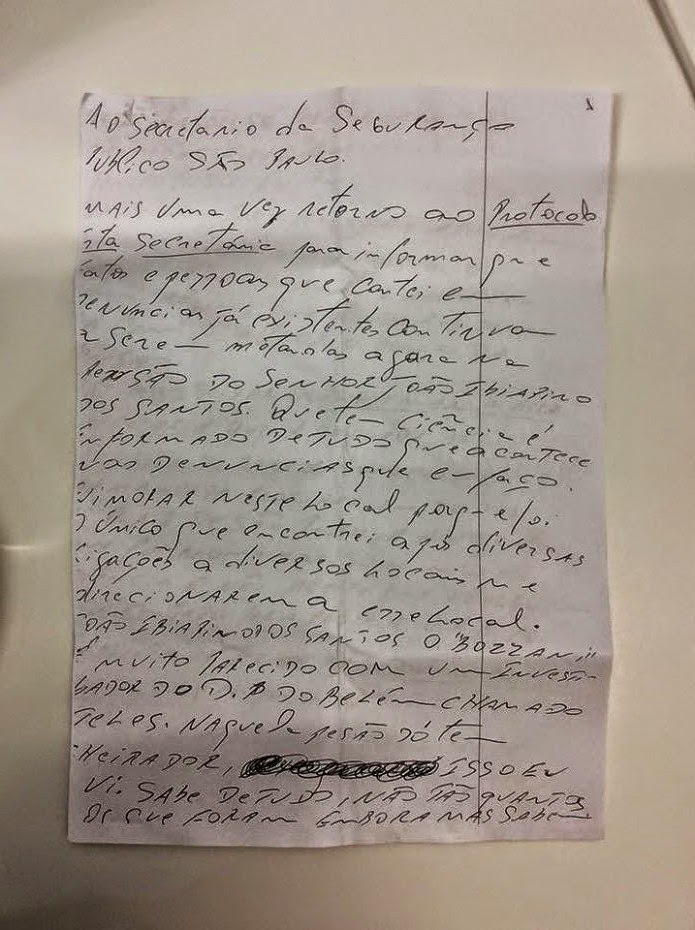 1
Ao Secretario da Segurança
Publico São Paulo.
Mais uma vez retorno ao Protocolo
sta Secretária para informar que
fatos e pessoas que contei e
denuncias já existentes continua
a sere motanolas agora na
pensão do Senhor João Ibiapino
dos Santos. Que tem ciência é
informado de tudo que acontece
nas denuncias que eu faço.
Vimorar neste local porque foi
o único que encontrei após diversas
ligações a diversos locais me
direcionarem a esse local.
João Ibiapino dos Santos o "Bozzani"
é muito parecido com um investi-
gador do D.P do Belém chamado
Teles. Naquela pesão só tem
, isso eu
vi. Sabe de tudo, não tão quantos
os que foram embora mas sabem